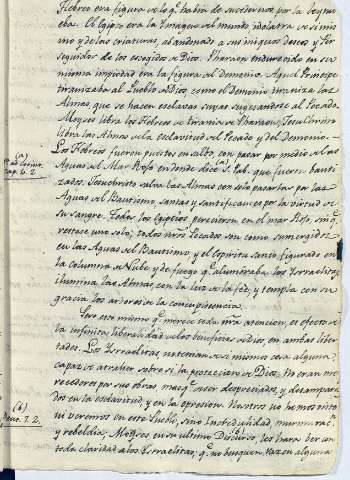 Hebreo era figura de lo q.e habia de sucedernos por la
eba. El Egipto era la Imagen del mundo, idolatra de si mis
mo y de las criaturas, abandonado a sus iniquos deseos y Per
seguidor de los escogidos de Dios. Pharaon endurecido en su
misma impiedad era la figura del Demonio. Aquel Principe
tiranizaba al Pueblo de Dios, como el Demonio tiraniza las
Almas que se hacen esclavas suyas sugetandose al Pecado.
Moyses libra los Hebreos de la tirania de Pharaon; Jesu Christo
libra las Almas de la esclavitud del Pecado y del Demonio.
Los Hebreos fueron puestos en salvo, con pasar por medio de las
Aguas del Mar Rojo en donde dice (a) S. Pab. que fueron bauti
zados. Jesuchristo salva las Almas con solo pasarlas por las
Aguas del Bautismo, santas y santificantes por la virtud de
su sangre. Todos los Egipcios perecieron en el mar Rojo, sin q.e
restase uno solo; todos nros Pecados son como sumergidos
en las Aguas del Bautismo y el Espiritu Santo figurado en
la columna de Nube y de fuego q.e alumbraba los Ysraelitas,
ilumina las Almas con la luz de la fe, y templa con su
gracia los ardores de la concupiscencia.
Pero este mismo q.e merece toda nra atencion, es efecto de
la infinita liberalidad de los beneficios de Dios, en ambas liber
tades. Los Ysraelitas no tenian de si mismos cosa alguna
capaz de atraher sobre si la proteccion de Dios. No eran me
recedores por sus obras mas q.e a ser despreciados, y desampara
dos en la esclavitud, y en la opresion. Nosotros no hemos visto
ni veremos en este Pueblo, sino Incredulidad, murmurac.n
y rebeldia; Moyses en su ultimo Discurso, les hara ver con
toda claridad a los Ysraelitas, q.e no busquen razon alguna
(a)
Cap. 6. 2.
(b)
7. 2.